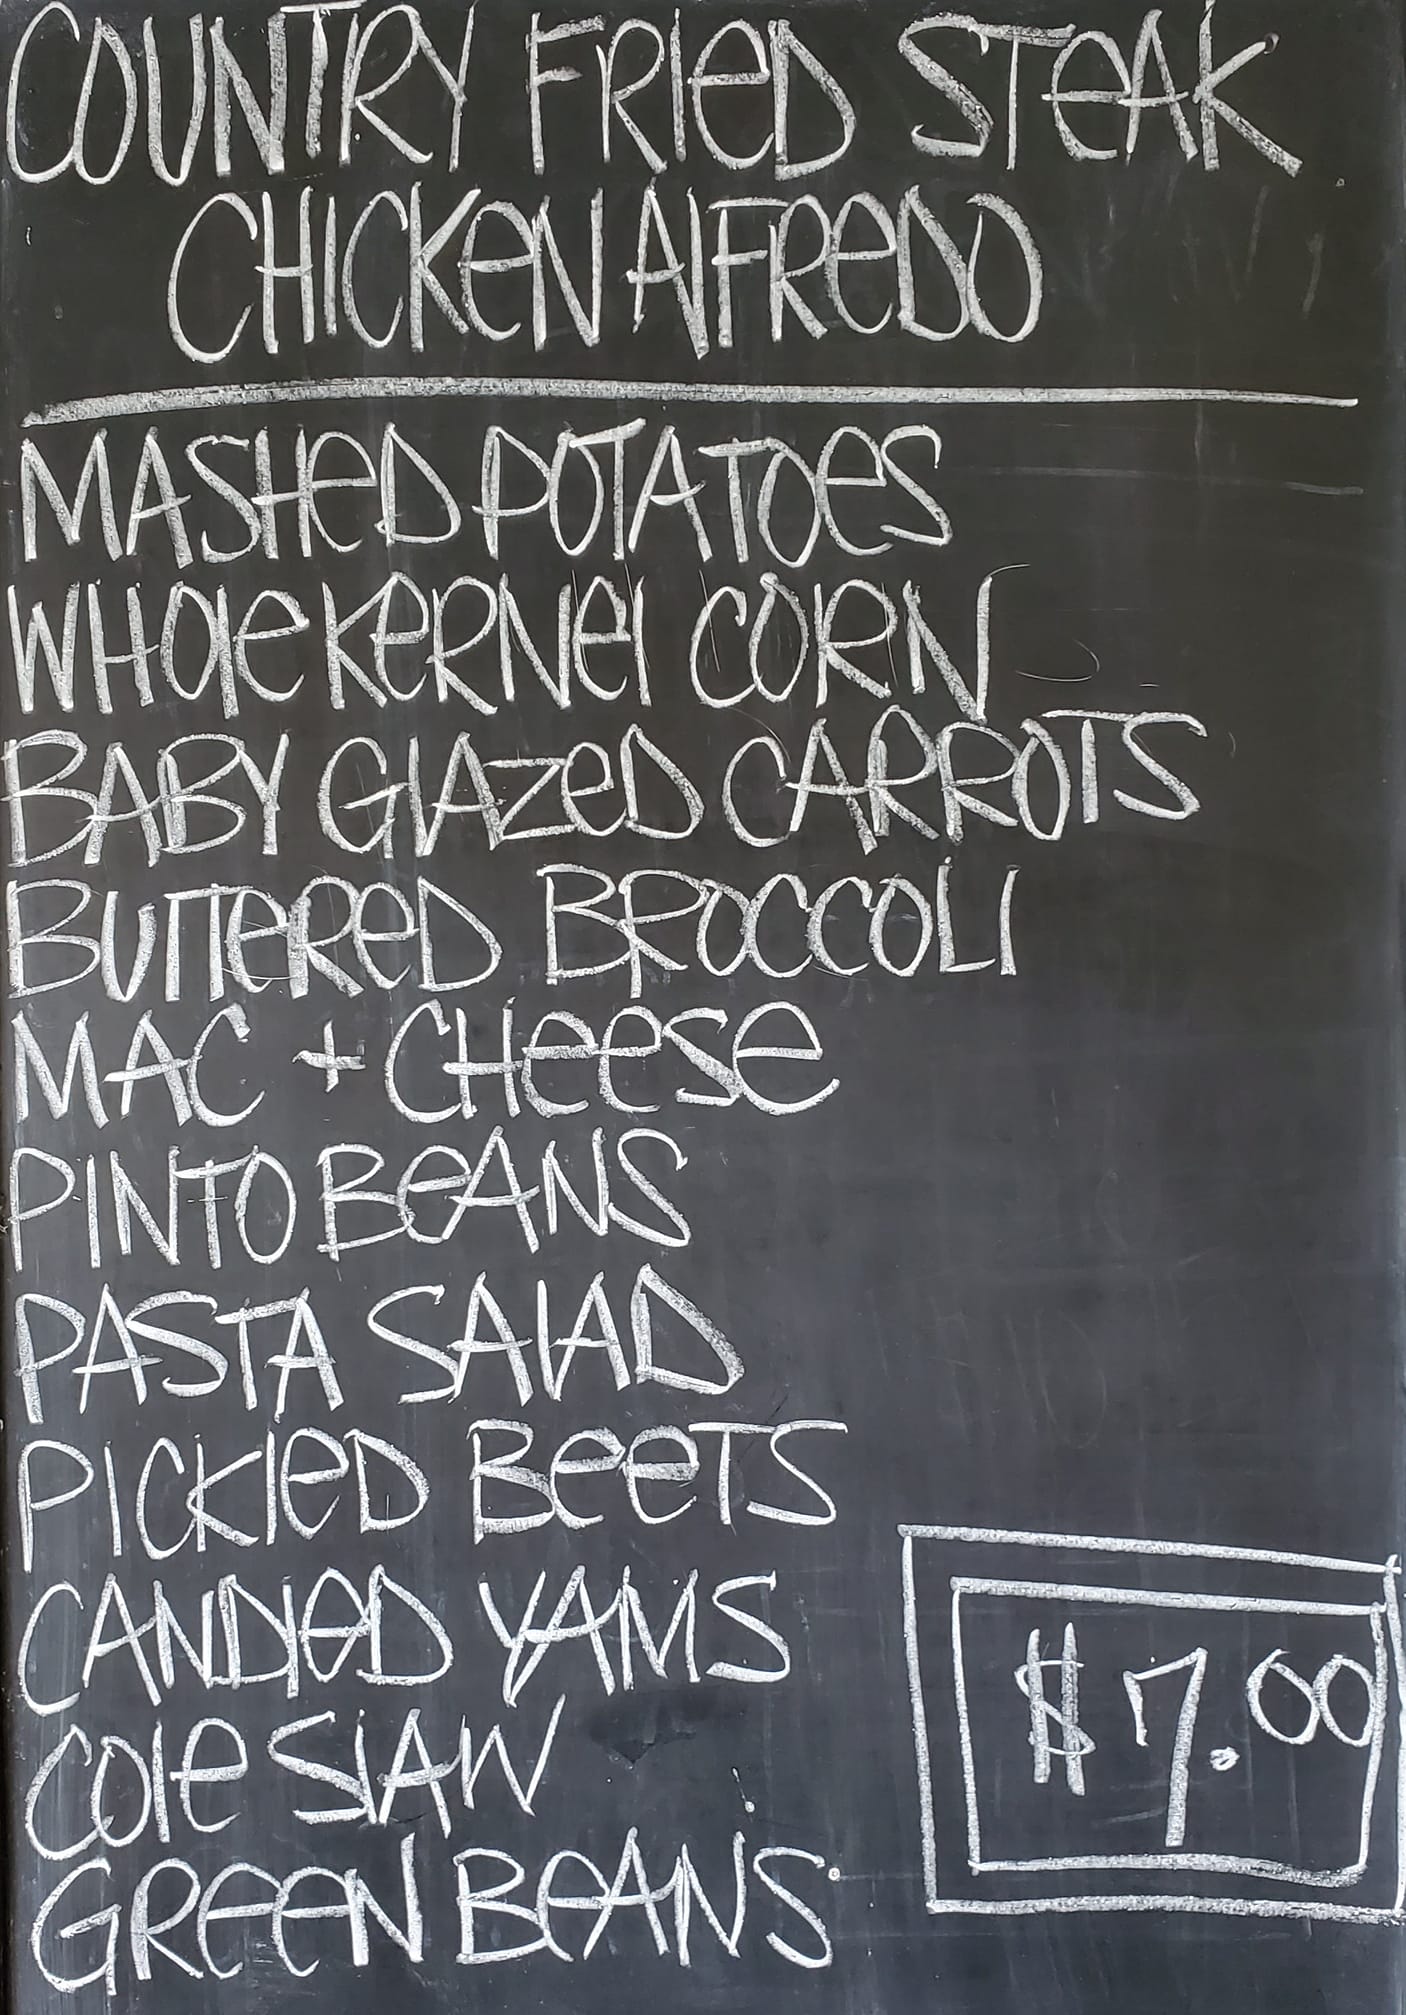 COUNTRY FRIED STEAK
CHICKEN AlFREDO
MASHED POTATOES
WHOlE KERNEl CORN
BABY GlAZED CARROTS
BUTTERED BROCCOLI
MAC + CHEESE
PINTO BEANS
PASTA SAlAD
PICKlED BEETS
CANDIED YAMS
COlE SlAW
GREEN BEANS
$7.00